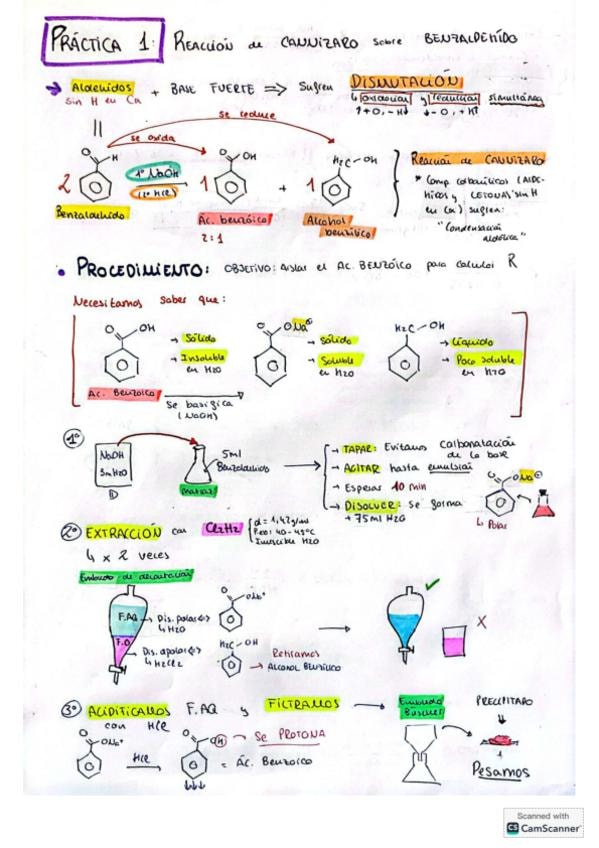 PRÁCTICA 1: REACCIÓN de CANNIZARO sobre BENZALDEHIDO
→ Aldehídos + BASE FUERTE ⇒ Sufren DISMUTACIÓN
sin H en Cα
↳ oxidación y reducción simultánea
↑+O, -H↓ ↓-O, +H↑
se reduce
se oxida
O H
O OH
H2C-OH
2
1º NaOH
(2º HCl)
1 + 1
Benzaldehído
Ác. benzóico
Alcohol bencílico
2:1
Reacción de CANNIZARO
* Comp. carbonílicos (ALDEHIDOS y CETONAS sin H en Cα) sufren:
"Condensación aldólica"
• PROCEDIMIENTO: OBJETIVO: Aislar el AC. BENZÓICO para calcular R
Necesitamos saber que:
O OH
→ Sólido
→ Insoluble en H2O
O ONa⊕
→ Sólido
→ Soluble en H2O
H2C-OH
→ Líquido
→ Poco soluble en H2O
Ac. Benzoico
Se basifica (NaOH)
1º
NaOH
5ml Benzaldehído
matraz
→ TAPAR: Evitamos carbonatación de la base
→ AGITAR hasta emulsión
→ Esperar 10 min
→ DISOLVER: se forma
+ 75ml H2O
↳ Polar
2º EXTRACCIÓN con
Inmiscible H2O
4 x 2 veces
Embudo de decantación
F.AQ → Dis. polar
↳ H2O
F.O → Dis. apolar
H2C-OH
Retiramos
→ ALCOHOL BENCÍLICO
X
3º ACIDIFICAMOS F.AQ y FILTRAMOS → Embudo
con HCl
PRECIPITADO
→ SE PROTONA
HCl
= Ác. Benzoico
Pesamos
Scanned with
CS CamScanner